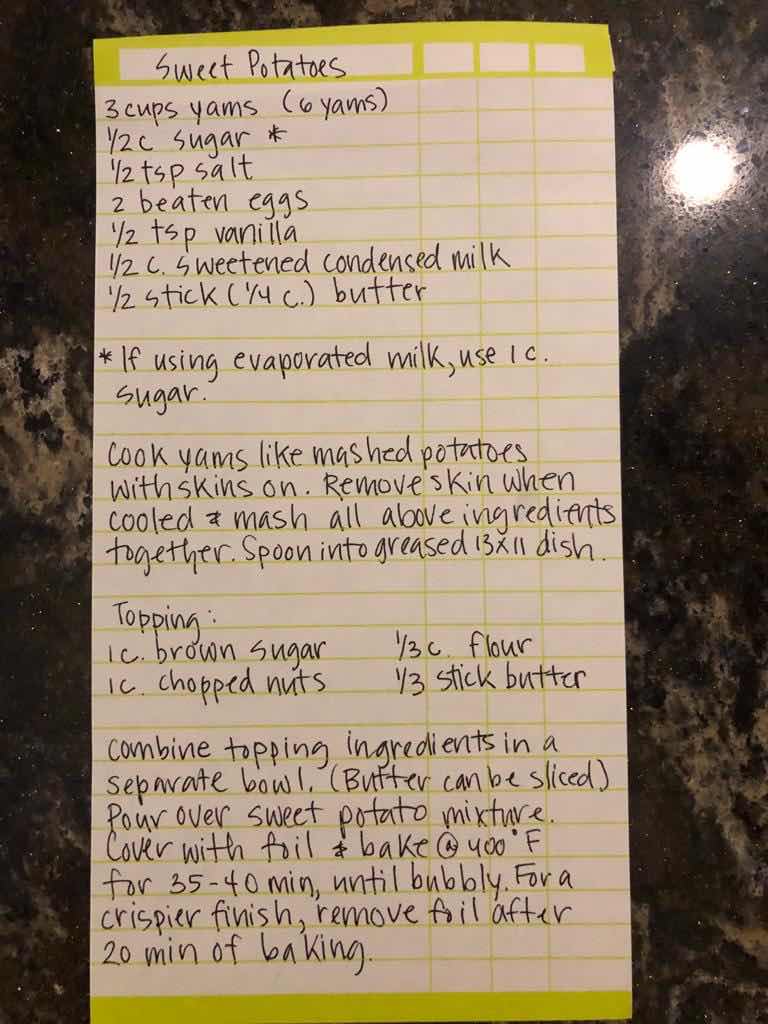 Sweet Potatoes
3 cups yams (6 yams)
1/2 c sugar *
1/2 tsp salt
2 beaten eggs
1/2 tsp vanilla
1/2 c. sweetened condensed milk
1/2 stick (1/4 c.) butter
* If using evaporated milk, use 1 c.
sugar.
Cook yams like mashed potatoes
with skins on. Remove skin when
cooled & mash all above ingredients
together. Spoon into greased 13x11 dish.
Topping:
1 c. brown sugar 1/3 c. flour
1 c. chopped nuts 1/3 stick butter
Combine topping ingredients in a
separate bowl. (Butter can be sliced)
Pour over sweet potato mixture.
Cover with foil & bake @ 400°F
for 35-40 min, until bubbly. For a
crispier finish, remove foil after
20 min of baking.